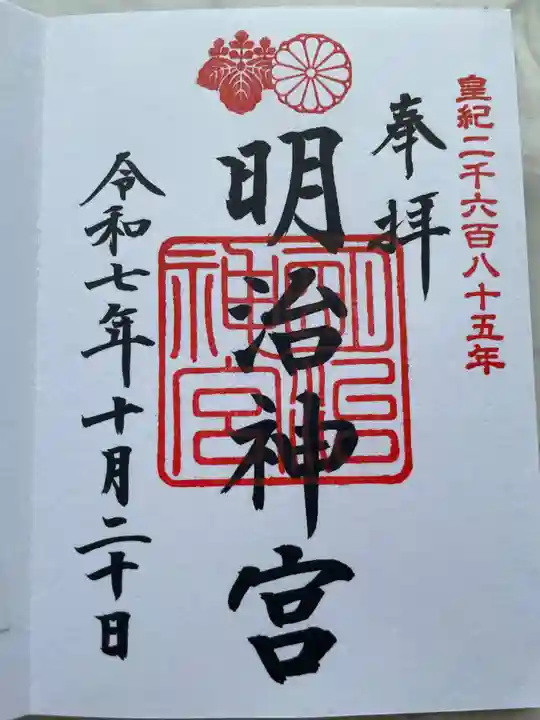 皇紀二千六百八十五年
奉拝
明治神宮
明治神宮
令和七年十月二十日